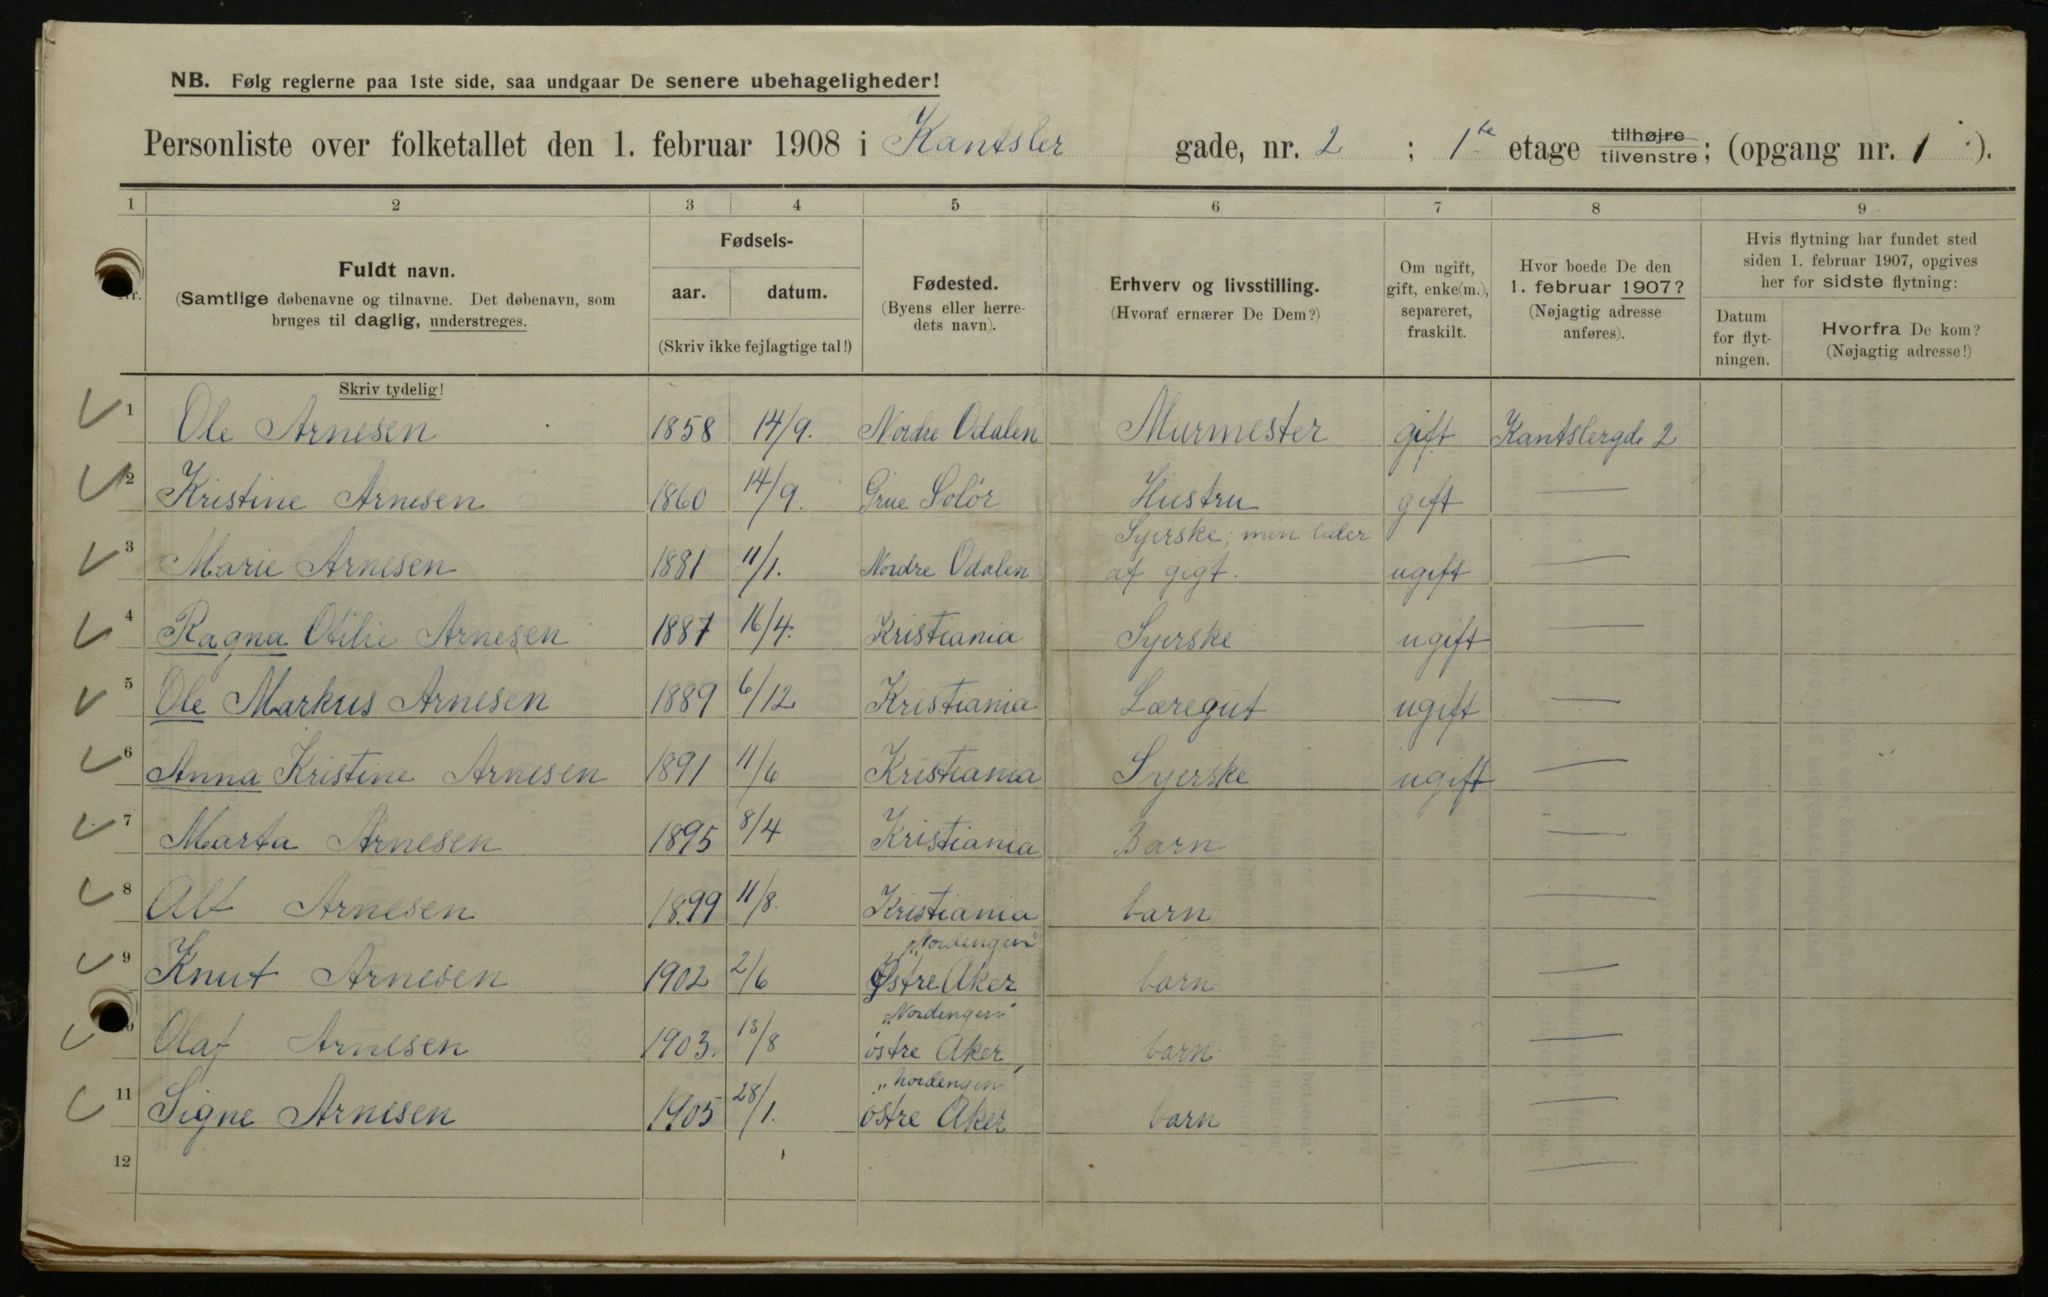 NB. Følg reglerne paa 1ste side, saa undgaar De senere ubehageligheder!
Personliste over folketallet den 1. februar 1908 i Kantsler gade, nr. 2 ; 1te etage tilhøjre tilvenstre; (opgang nr. 1 ).
1 2 3 4 5 6 7 8 9
Nr. Fuldt navn. (Samtlige døbenavne og tilnavne. Det døbenavn, som
bruges til daglig, understreges.
Skriv tydelig!
Fødsels-
aar. datum.
(Skriv ikke fejlagtige tal!)
Fødested.
(Byens eller herre-
dets navn).
Erhverv og livsstilling.
(Hvoraf ernærer De Dem?)
Om ugift,
gift, enke(m.),
separeret,
fraskilt.
Hvor boede De den
1. februar 1907?
(Nøjagtig adresse
anføres).
Hvis flytning har fundet sted
siden 1. februar 1907, opgives
her for sidste flytning:
Datum
for flyt-
ningen.
Hvorfra De kom?
(Nøjagtig adresse!)
1 Ole Arnesen 1858 14/9. Nordre Odalen Murmester gift Kantslergd. 2
2 Kristine Arnesen 1860 14/9. Grue Solör Hustru gift —
3 Marie Arnesen 1881 11/1. Nordre Odalen Syerske; men lider
af gigt. ugift —
4 Ragna Otilie Arnesen 1887 16/4. Kristiania Syerske ugift —
5 Ole Markus Arnesen 1889 6/12 Kristiania Læregut ugift —
6 Anna Kristine Arnesen 1891 11/6 Kristiania Syerske ugift —
7 Marta Arnesen 1895 8/4 Kristiania Barn —
8 Alf Arnesen 1899 11/8. Kristiania barn —
9 Knut Arnesen 1902 2/6 „Nordengen"
Østre Aker barn —
10 Olaf Arnesen 1903. 13/8 „Nordengen"
östre Aker barn —
11 Signe Arnesen 1905 28/1. „Nordengen"
östre Aker barn —
12 —